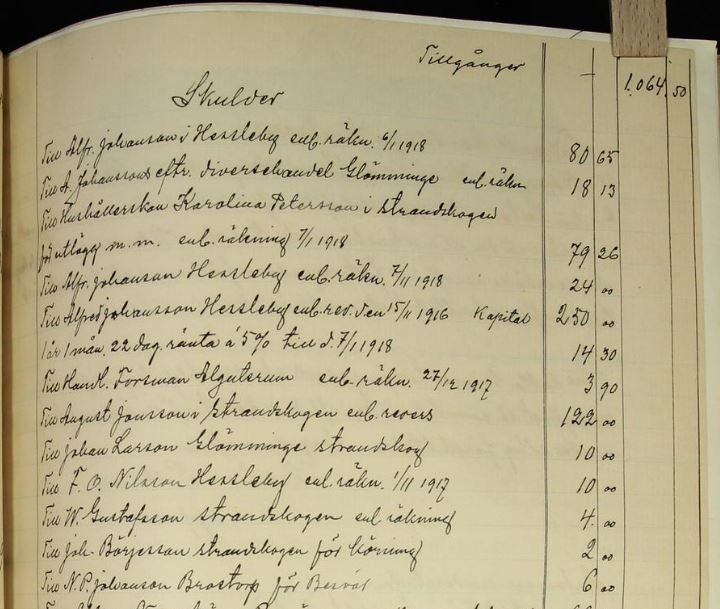 Tillgånger — 1.064.50
Skulder
Till Alfr. Johanson i Hessleby enl. räkn. 6/1 1918 80 65
Till A. Johanssons eftr. diversehandel Glömminge enl. räkn 18 13
Till Hushållerskan Karolina Petersson i Strandskogen
för utlägg m. m. enl. räkning 7/1 1918 79 26
Till Alfr. Johanson Hessleby enl. räkn. 7/11 1918 24 00
Till Alfred Johansson Hessleby enl. rev. d. en 15/11 1916 Kapital 250 00
1 år 1 mån. 22 dag. ränta á 5% till d. 7/1 1918 14 30
Till Handl. Forsman Algutsrum enl. räkn. 27/12 1917 3 90
Till August Jonsson i Strandskogen enl. revers 122 00
Till Johan Larson Glömminge Strandskog 10 00
Till F. O. Nilsson Hessleby enl. räkn. 1/11 1917 10 00
Till W. Gustafsson Strandskogen enl räkning 4 00
Till Joh. Börjesson Strandskogen för körning 2 00
Till N. P. Johanson Brostorp för Besvär 6 00